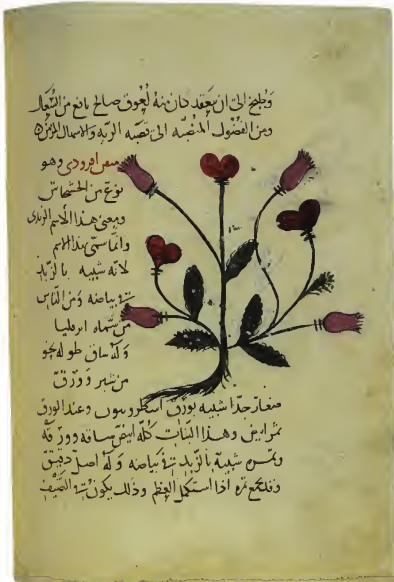 وطبخ الى ان ينعقد كان منه لعوق صالح نافع من السعال
ومن الفضول المنصبه الى قصبه الريه والاسهال المزمن
افرودى وهو
نوع من الخشخاش
ومعنى هذا الاسم الزبدى
وانما سمى بهذا الاسم
لانه شبيه بالزبد
فى بياضه ومن الناس
من سماه ايرقليا
وله ساق طوله نحو
من شبر وورق
صغار جدا شبيه بورق اسطروثيون وعند الورق
ثمر ابيض وهذا النبات كله ابيض ساقه وورقه
وثمره شبيه بالزبد فى بياضه وله اصل دقيق
وقد يجمع ثمره اذا استكمل العظم وذلك يكون فى الصيف